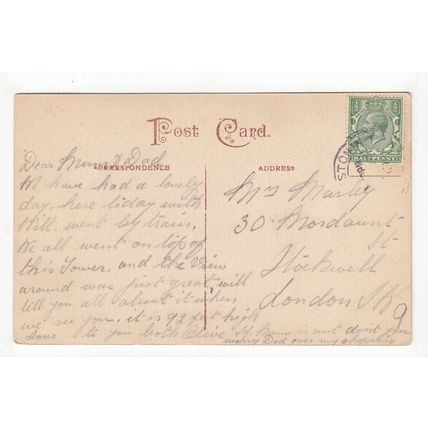 Post Card.
CORRESPONDENCE
ADDRESS
HALFPENNY
STONE
Dear Mum & Dad
We have had a lovely
day, here today with
Will, went by train,
We all went on top of
this Tower, and the View
around was just great, will
tell you all about it when
we see you, it is 92 feet high
Love to you both Olive
if Mum is out don't you
worry Dad over my shopping
Mrs Marly
30 Mordaunt
St
Stockwell
London SW
9